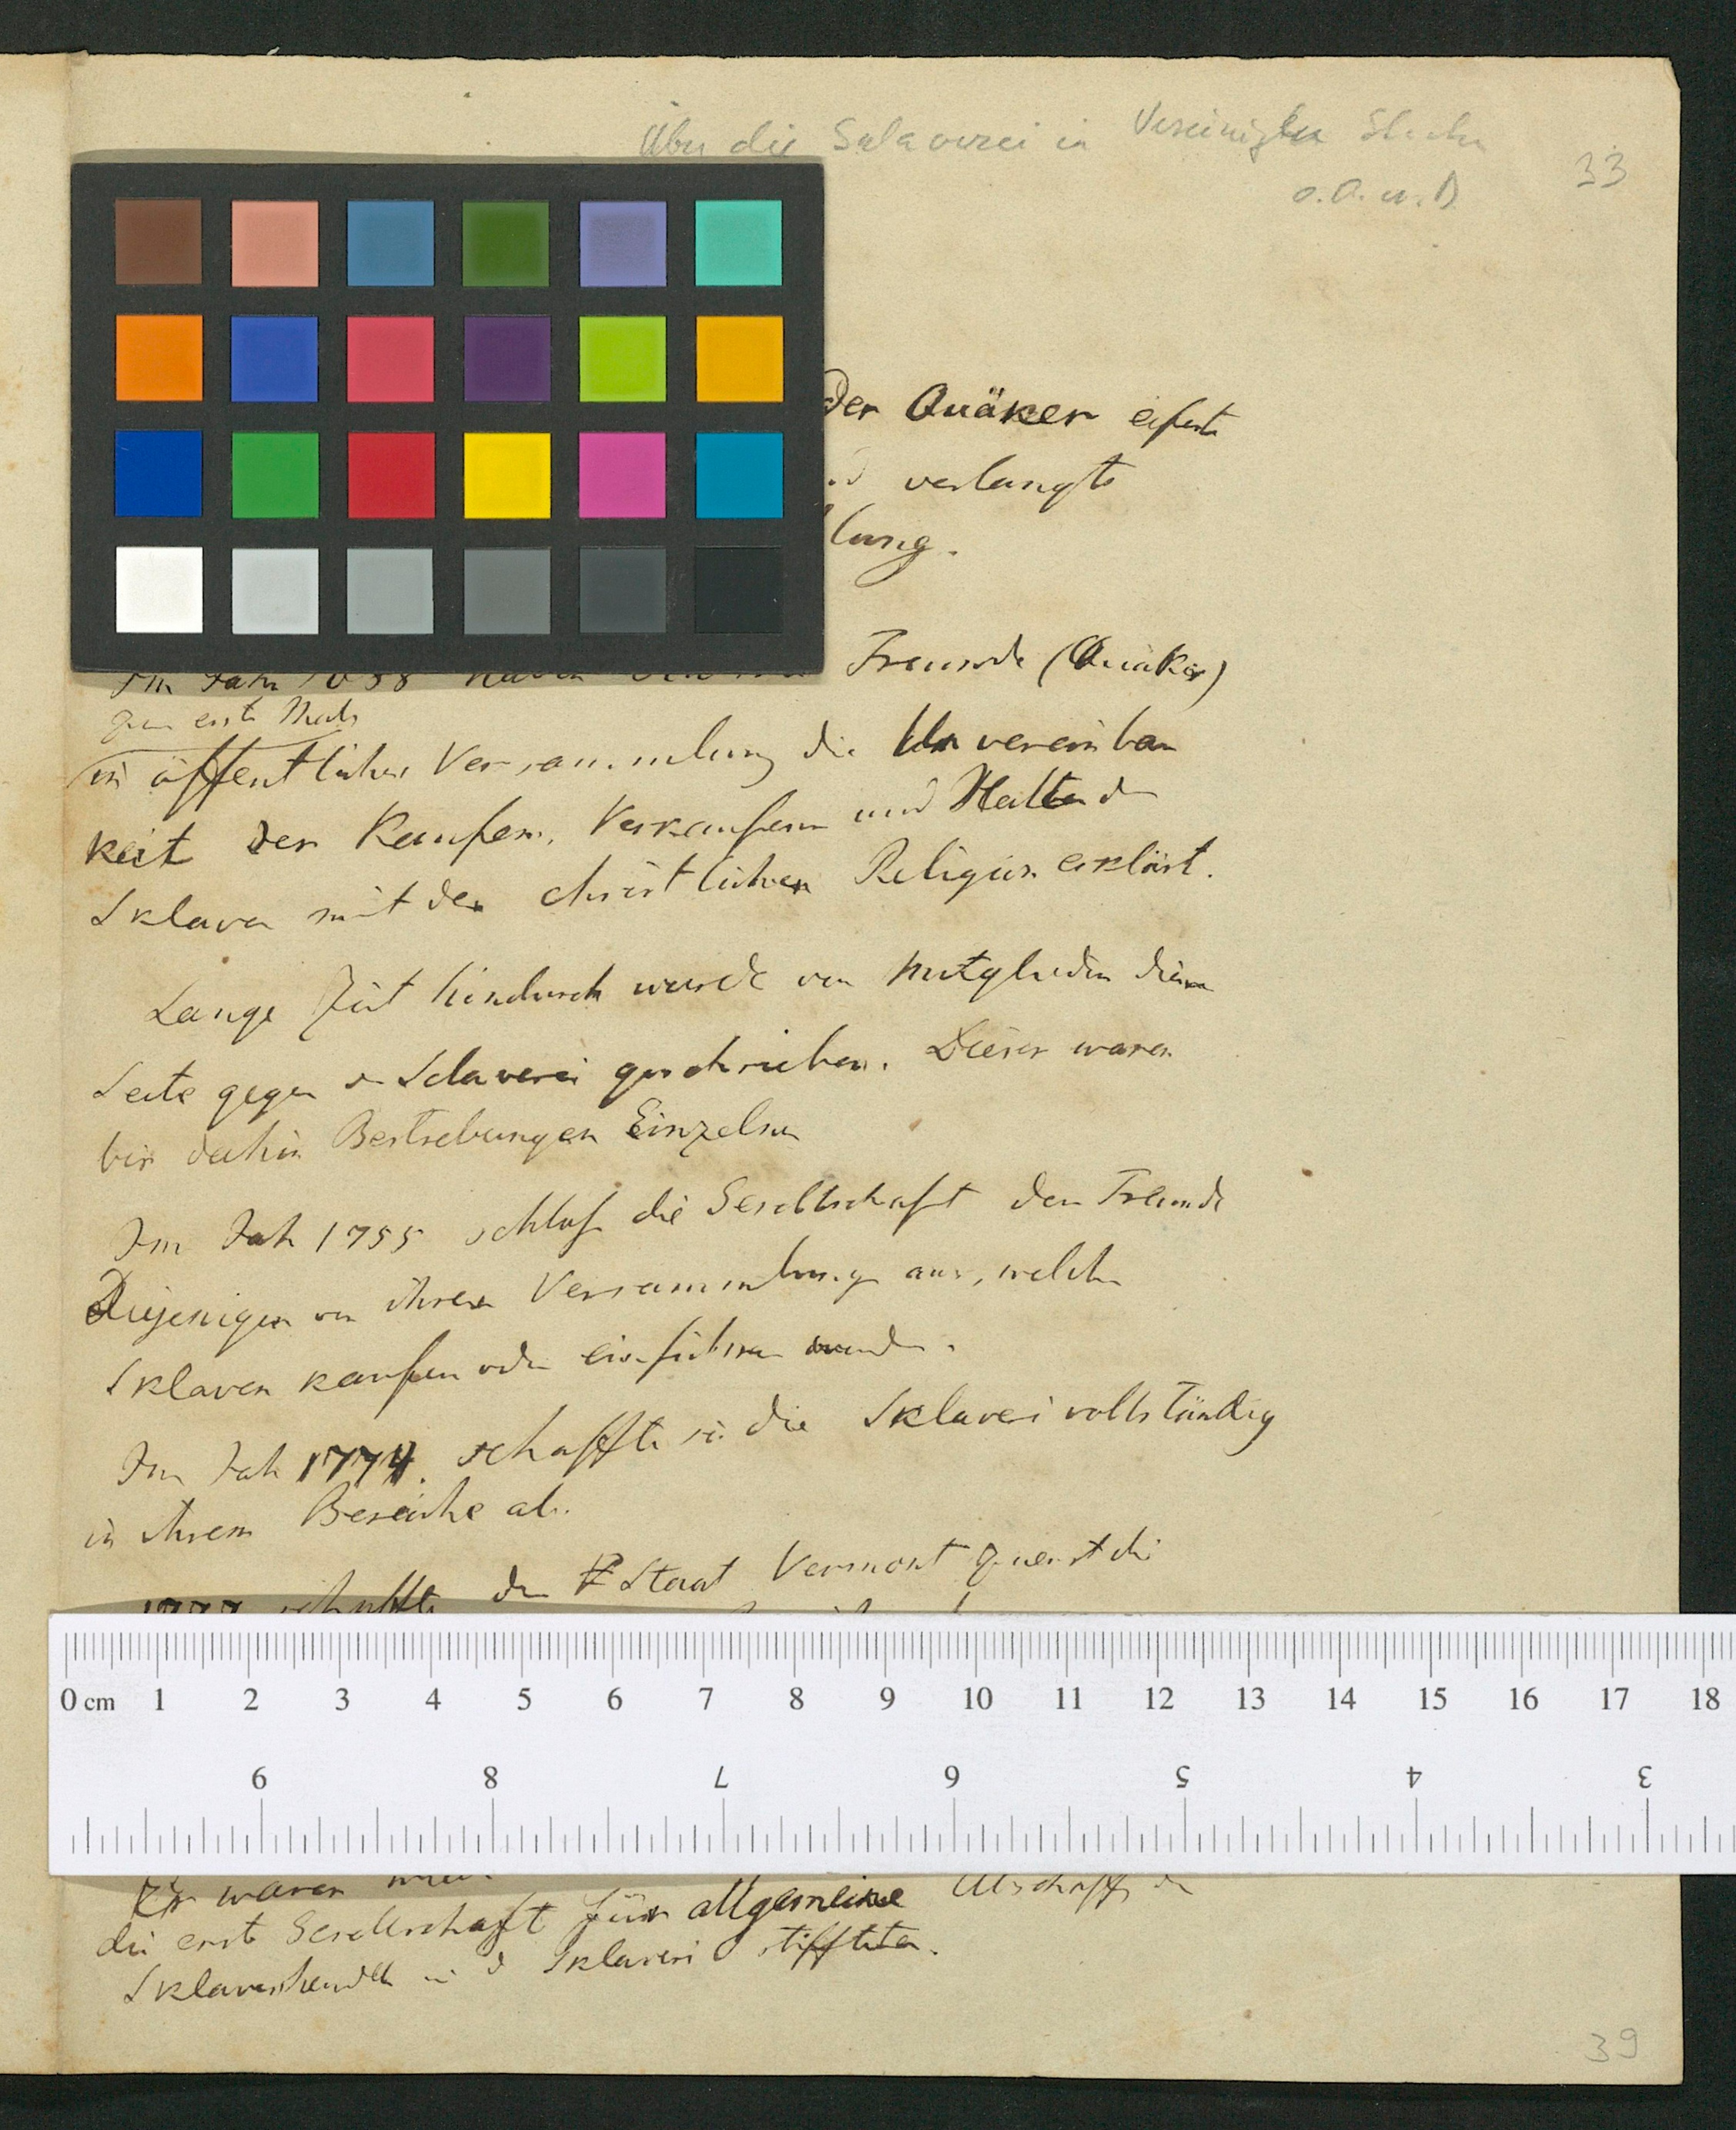 Über die Sclaverei in Vereinigten Staaten
o.O. u. D
33
der Quäker eiferte
verlangte
lung.
Im Jahr 1688 haben Freunde (Quäker)
zum erste Mals
in öffentlicher Versammlung die Unvereinbar
keit der Kaufens, Verkaufens und Halten d
Sklaven mit der christlichen Religion erklärt.
Lange Zeit hindurch wurde von Mitgliedern dieser
Secte gegen d Sclaverei geschrieben. Dieses waren
bis dahin Bestrebungen Einzelner
Im Jah 1755 schloß die Gesellschaft der Freunde
Diejenigen von ihren Versammlungen aus, welche
Sklaven kaufen oder einführen wurden.
Im Jah 1774. schaffte sie die Sklaverei vollständig
in ihrem Bereiche ab.
1777 schaffte der Staat Vermont zuerst die
0 cm 1 2 3 4 5 6 7 8 9 10 11 12 13 14 15 16 17 18
9 8 7 6 5 4 3
Es waren
die erste Gesellschaft für allgemeine Abschaffg der
Sklavenhandels u d Sklaverei stiffteten.
39